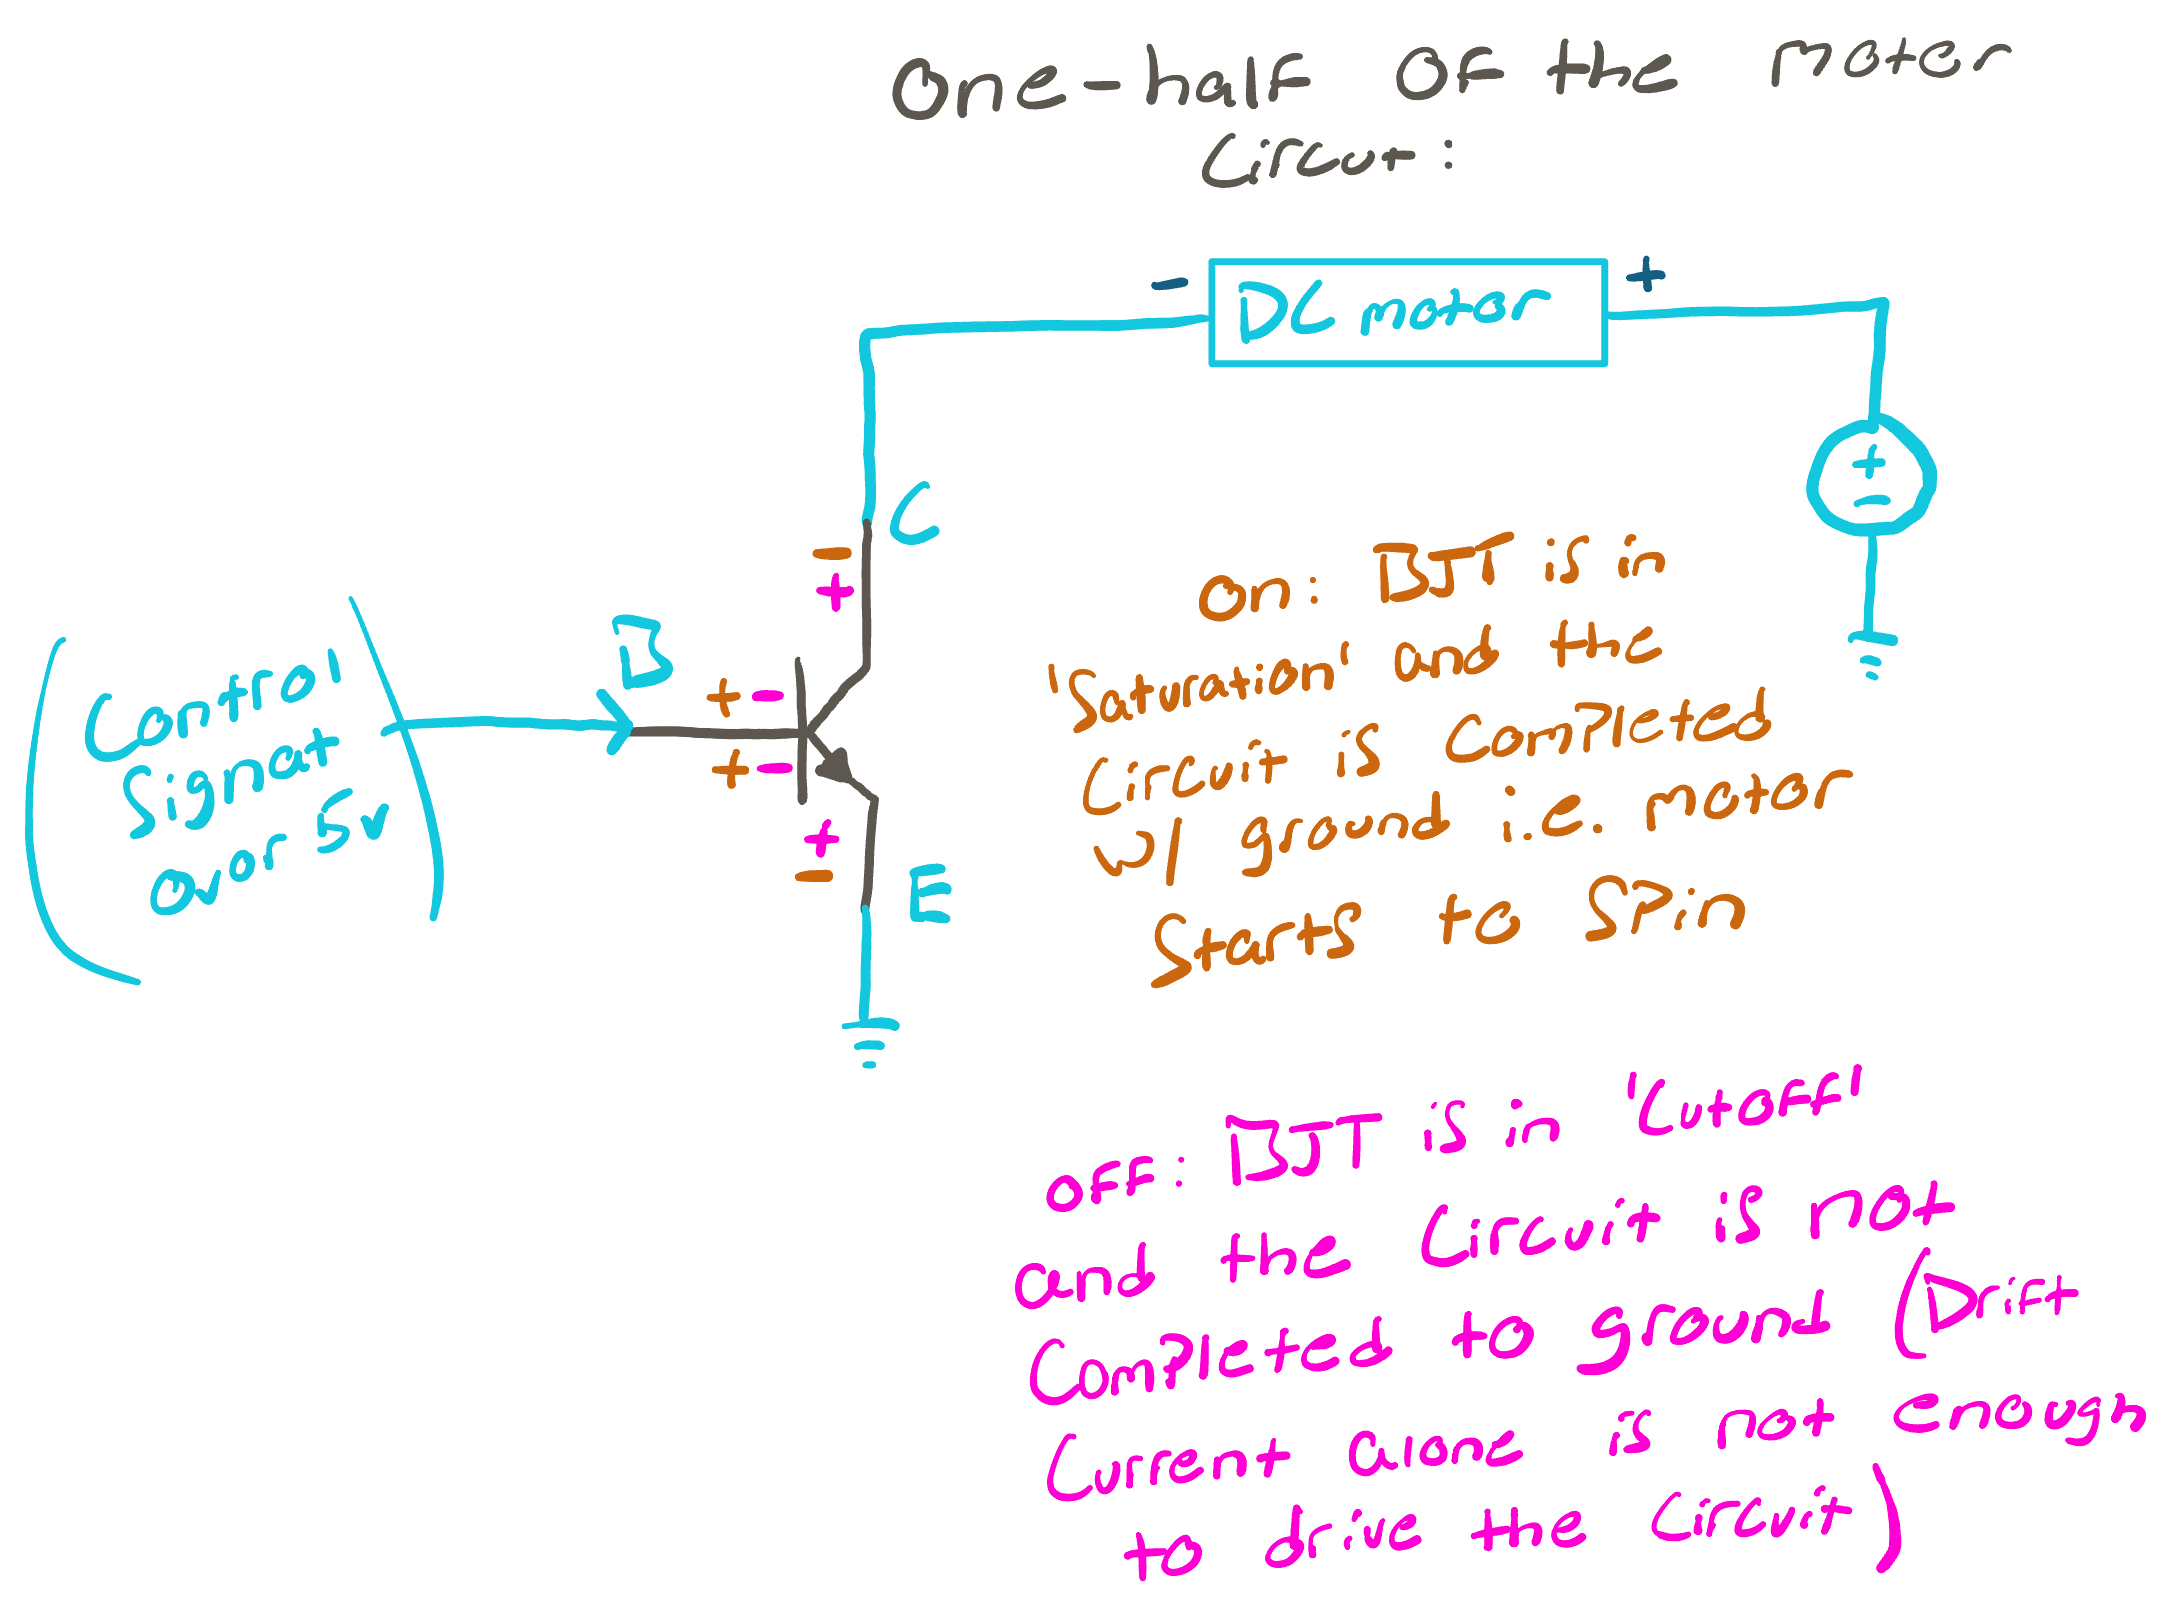 One-half of the motor
Circut:
- DC motor +
+
-
C
-
+
B
+ -
+ -
+
-
E
Control
Signal
0v or 5v
On: BJT is in
'Saturation' and the
Circuit is Completed
w/ ground i.e. motor
Starts to Spin
OFF: BJT is in 'Cutoff'
and the Circuit is not
Completed to ground (Drift
Current alone is not enough
to drive the Circuit)